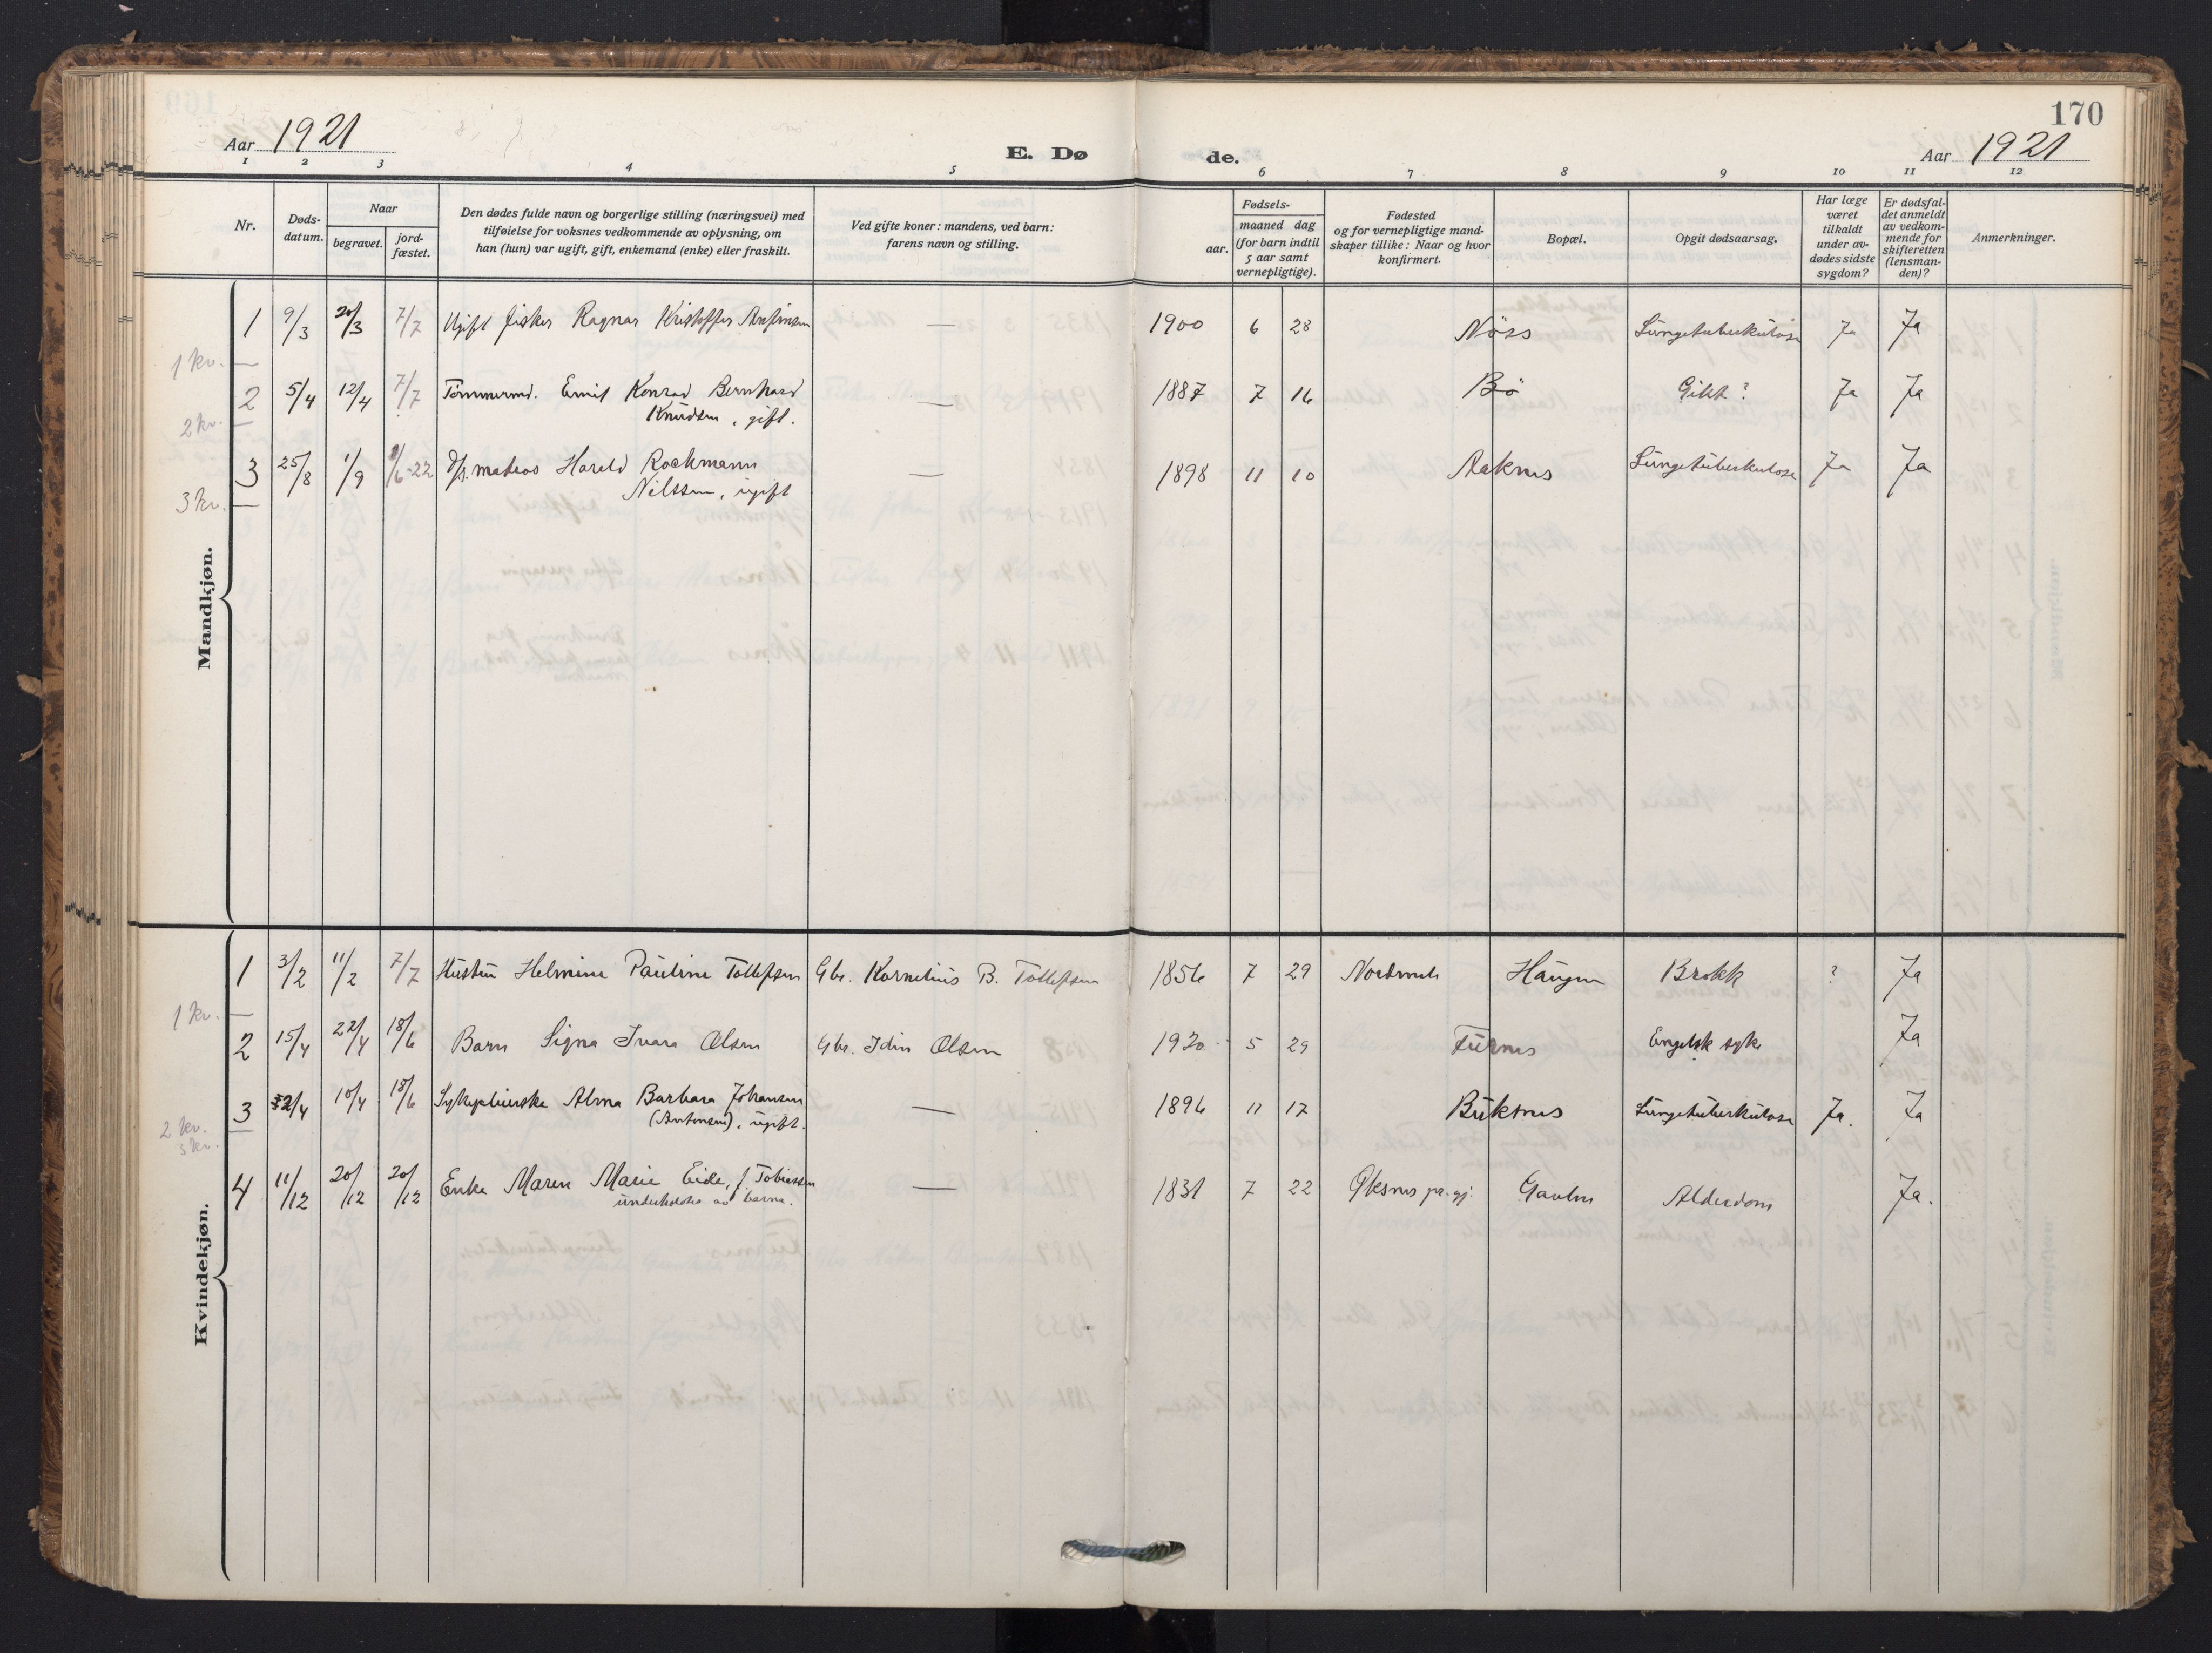 170
Aar 1921
E. Dø
de.
Aar 1921
1 2 3 4 5 6 7 8 9 10 11 12
Nr.
Døds-
datum.
Naar
begravet.
jord-
fæstet.
Den dødes fulde navn og borgerlige stilling (næringsvei) med
tilføielse for voksnes vedkommende av oplysning, om
han (hun) var ugift, gift, enkemand (enke) eller fraskilt.
Ved gifte koner: mandens, ved barn:
farens navn og stilling.
Fødsels-
aar.
maaned dag
(for barn indtil
5 aar samt
vernepligtige).
Fødested
og for vernepligtige mand-
skaper tillike: Naar og hvor
konfirmert.
Bopæl.
Opgit dødsaarsag.
Har læge
været
tilkaldt
under av-
dødes sidste
sygdom?
Er dødsfal-
det anmeldt
av vedkom-
mende for
skifteretten
(lensman-
den)?
Anmerkninger.
Mandkjøn.
1 9/3 20/3 7/7 Ugift fisker Ragnar Kristoffer — 1900 6 28 Nöss Lungetuberkulose Ja Ja
1 kv.
2 5/4 12/4 7/7 Tömmermd. Emil Konrad Bernhard — 1887 7 16 Bö Gikt? Ja Ja
Knudsen, gift.
2 kv.
3 25/8 1/9 /6-22 matros Harald Rockmann — 1898 11 10 Aaknes Lungetuberkulose Ja Ja
Nilssen, ugift
3 kv.
Kvindekjøn.
1 3/2 11/2 7/7 Hustru Helmine Pauline Tollefsen Gbr. Kornelius B. Tollefsen 1856 7 29 Haugen Brokk ? Ja
1 kv.
2 15/4 22/4 18/6 Barn Signa Ivara Olsen Gbr. Idin Olsen 1920 5 29 Engelsk syke Ja
3 2/4 10/4 18/6 Sykepleierske Alma Barbara Johansen — 1896 11 17 Buksnes Lungetuberkulose Ja. Ja
(Antonsen), ugift.
2 kv.
3 kv.
4 11/12 20/12 20/12 Enke Maren Marie Eide, f. Tobiassen — 1831 7 22 Øksnes pr.gj. Gaulen Alderdom Ja.
underholdes av barna.